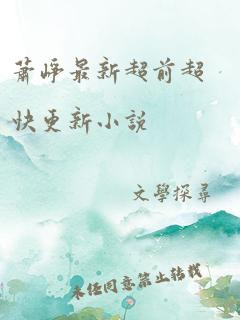 蕭崢最新超前超
快更新小說
文學探尋
未经同意禁止转载